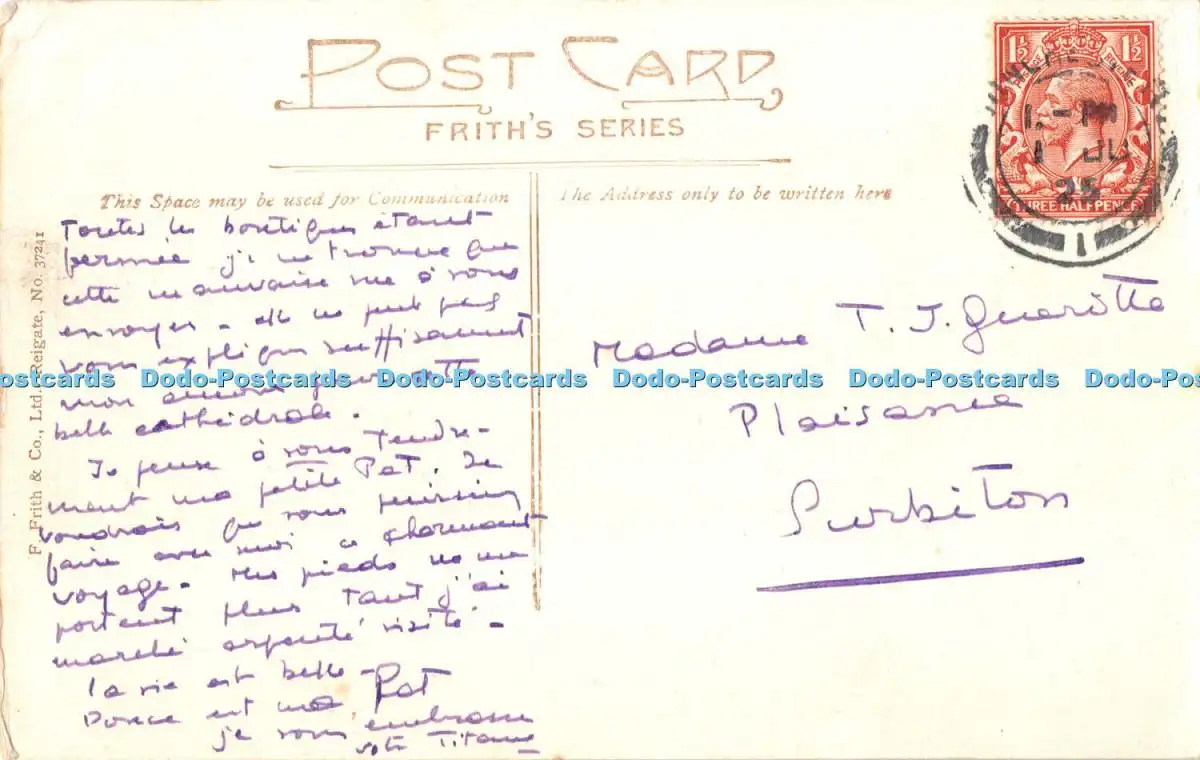 POST CARD
FRITH'S SERIES
This Space may be used for Communication
The Address only to be written here
F. Frith & Co., Ltd., Reigate, No. 37241
1½ 1½
POSTAGE REVENUE
THREE HALFPENCE
1 - PM
1 JU
25
1
Toutes les boutiques étant
fermée je ne trouve que
cette mauvaise vue à vous
envoyer - elle ne peut pas
vous expliquer suffisament
mon amour pour cette
belle cathédrale.
Je pense à vous tendre-
ment ma petite Pat. Je
voudrais que vous puissiez
faire avec moi ce charmant
voyage. Mes pieds ne me
portent plus tant j'ai
marché arpenté visité -
la vie est belle -
Douce est ma Pat
je vous embrasse
votre Titania
Madame T. J. Guaritta
Plaisance
Surbiton
Dodo-Postcards Dodo-Postcards Dodo-Postcards Dodo-Postcards Dodo-Postcards